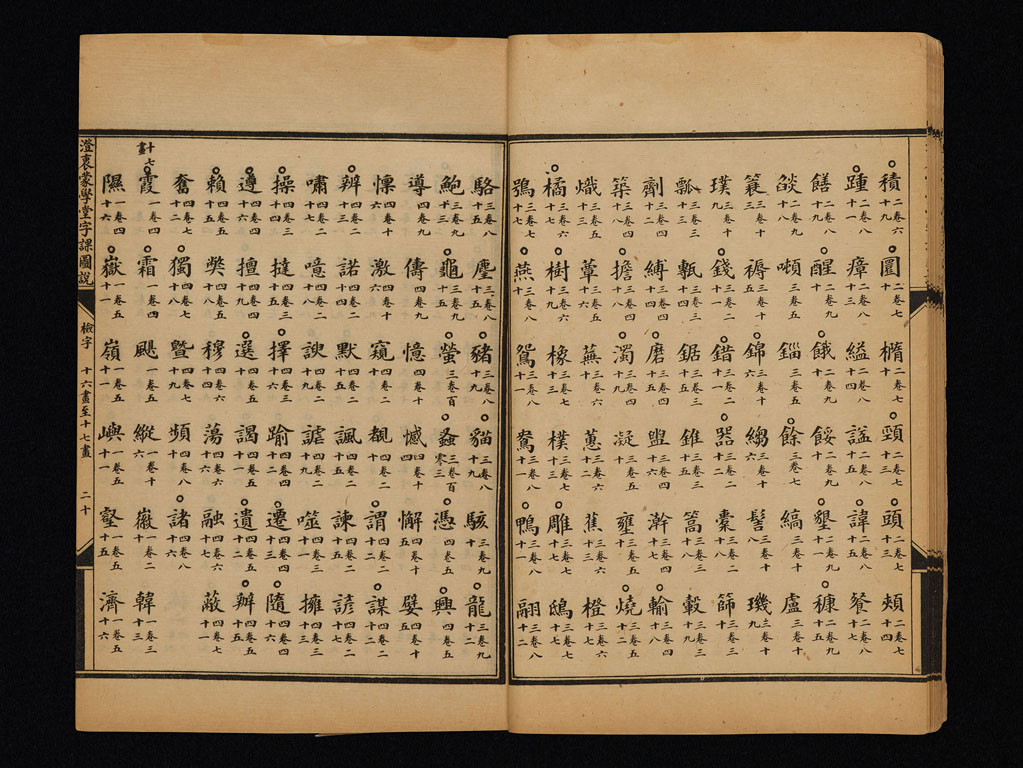 積二卷六十九 圜二卷七十 橢二卷七十 頸二卷七十三 頭二卷七十三 頰二卷七十四
踵二卷七十一 瘴二卷八十三 縊二卷八十四 諡二卷八十五 諱二卷八十五 餐二卷八十七
饍二卷九十九 醒二卷九十 餓二卷九十九 餒二卷九十九 墾二卷九十一 糠二卷九十
燄 噸 錙 餘三卷七 縞三卷十 盧三卷十
簑三卷十 褥三卷五 錦三卷六十 縐三卷六 髻三卷十 璣三卷十九
璞三卷十 錢三卷二十 錯三卷二十 器三卷二十 橐三卷二十八 篩三卷三十
瓢三卷三十三 甎三卷三十四 鋸三卷三十 錐三卷三十五 篙三卷三十八 轂三卷三十九
劑三卷四十二 縛三卷四十 磨三卷四十五 盥三卷四十六 澣三卷四十七 輸三卷四十八
築三卷四十八 擔三卷六十 濁三卷六十 凝三卷五十 甕三卷五十 燒三卷五十二
熾三卷五十三 蕈三卷六十六 蕪三卷六十 蕙三卷六十二 蕉三卷六十三 橙三卷六十五
橘三卷七十 樹三卷六十九 橡三卷七十 樸三卷七十三 雕三卷七十 鴟三卷七十
鴞三卷七十七 燕三卷八十 鴛三卷八十一 鴦三卷八十一 鴨三卷八十一 翮三卷八十二
駱三卷八十五 麈三卷八十五 豬三卷八十九 貓三卷八十九 駭三卷九十 龍三卷九十二
鮑三卷九十三 龜三卷九十五 螢三卷百 螽三卷百零三 憑四卷五 興四卷五
導四卷九 儔四卷九 憶四卷十 憾四卷十四 懈四卷十五 嬖四卷十
懍四卷十六 激四卷十六 窺四卷二十 覩四卷二十 謂四卷二十二 謀四卷二十二
辨四卷二十三 諾四卷二十四 默四卷二十五 諷四卷二十五 諫四卷二十 諺四卷二十
嘯四卷二十七 噫四卷二十八 諛四卷二十 謔四卷二十九 噬四卷三十一 擁四卷三十三
操四卷三十四 撻四卷三十五 擇四卷三十六 踰四卷四十二 遷四卷四十三 隨四卷四十六
遵四卷四十五 擅四卷四十九 選四卷五十 謁四卷五十一 遺四卷五十二 辦四卷五十五
賴四卷五十五 獘四卷五十八 穆四卷六十四 蕩四卷六十六 融四卷六十七 蔽四卷七十一
奮四卷七十二 獨四卷七十八 曁四卷七十九 頻四卷八十 諸四卷八十六
十七畫
霞一卷四 霜一卷四 颶一卷五 縱一卷十六 徽一卷二十 韓一卷三十三
隰一卷四十六 嶽一卷五十一 嶺一卷五十一 嶼一卷五十一 壑一卷五十五 濟一卷五十六
澄衷蒙學堂字課圖說
檢字 十六畫至十七畫 二十